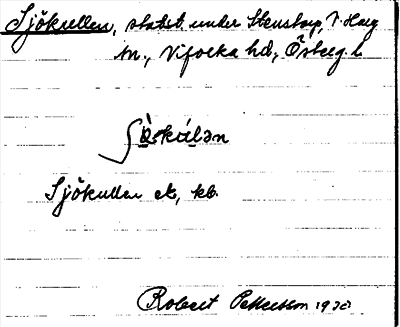 Sjökullen, statst. under Stenstorp, V. Harg
sn., Vifolka hd, Östergl.
ʃö̀kúlən
Sjökullen ek, kb.
Robert Pettersson 1930